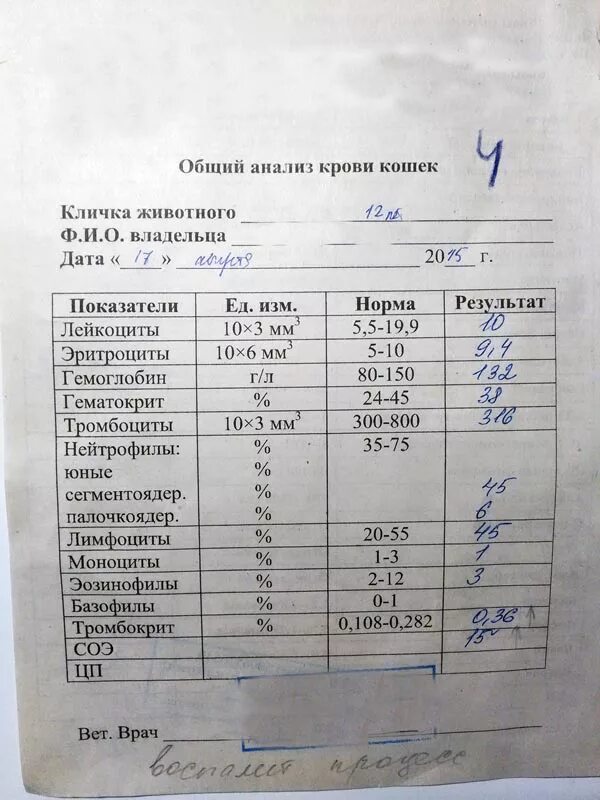 Ч
Общий анализ крови кошек
Кличка животного 12 лет
Ф.И.О. владельца
Дата « 17 » августа 2015 г.
Показатели Ед. изм. Норма Результат
Лейкоциты 10×3 мм³ 5,5-19,9 10
Эритроциты 10×6 мм³ 5-10 9,4
Гемоглобин г/л 80-150 132
Гематокрит % 24-45 38
Тромбоциты 10×3 мм³ 300-800 316
Нейтрофилы: % 35-75
юные %
сегментоядер. % 45
палочкоядер. % 6
Лимфоциты % 20-55 45
Моноциты % 1-3 1
Эозинофилы % 2-12 3
Базофилы % 0-1
Тромбокрит % 0,108-0,282 0,36 ↑
СОЭ 15 ↑
ЦП
Вет. Врач
воспалит процесс